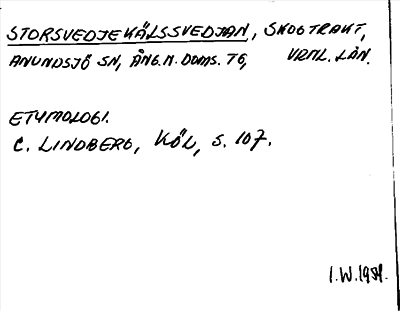 STORSVEDJEKÄLSSVEDJAN, SKOGTRAKT,
ANUNDSJÖ SN, ÅNG.N.DOMS.TG, VRML. LÄN.
ETYMOLOGI.
C. LINDBERG, KÖL, S. 107.
I.W.1954.